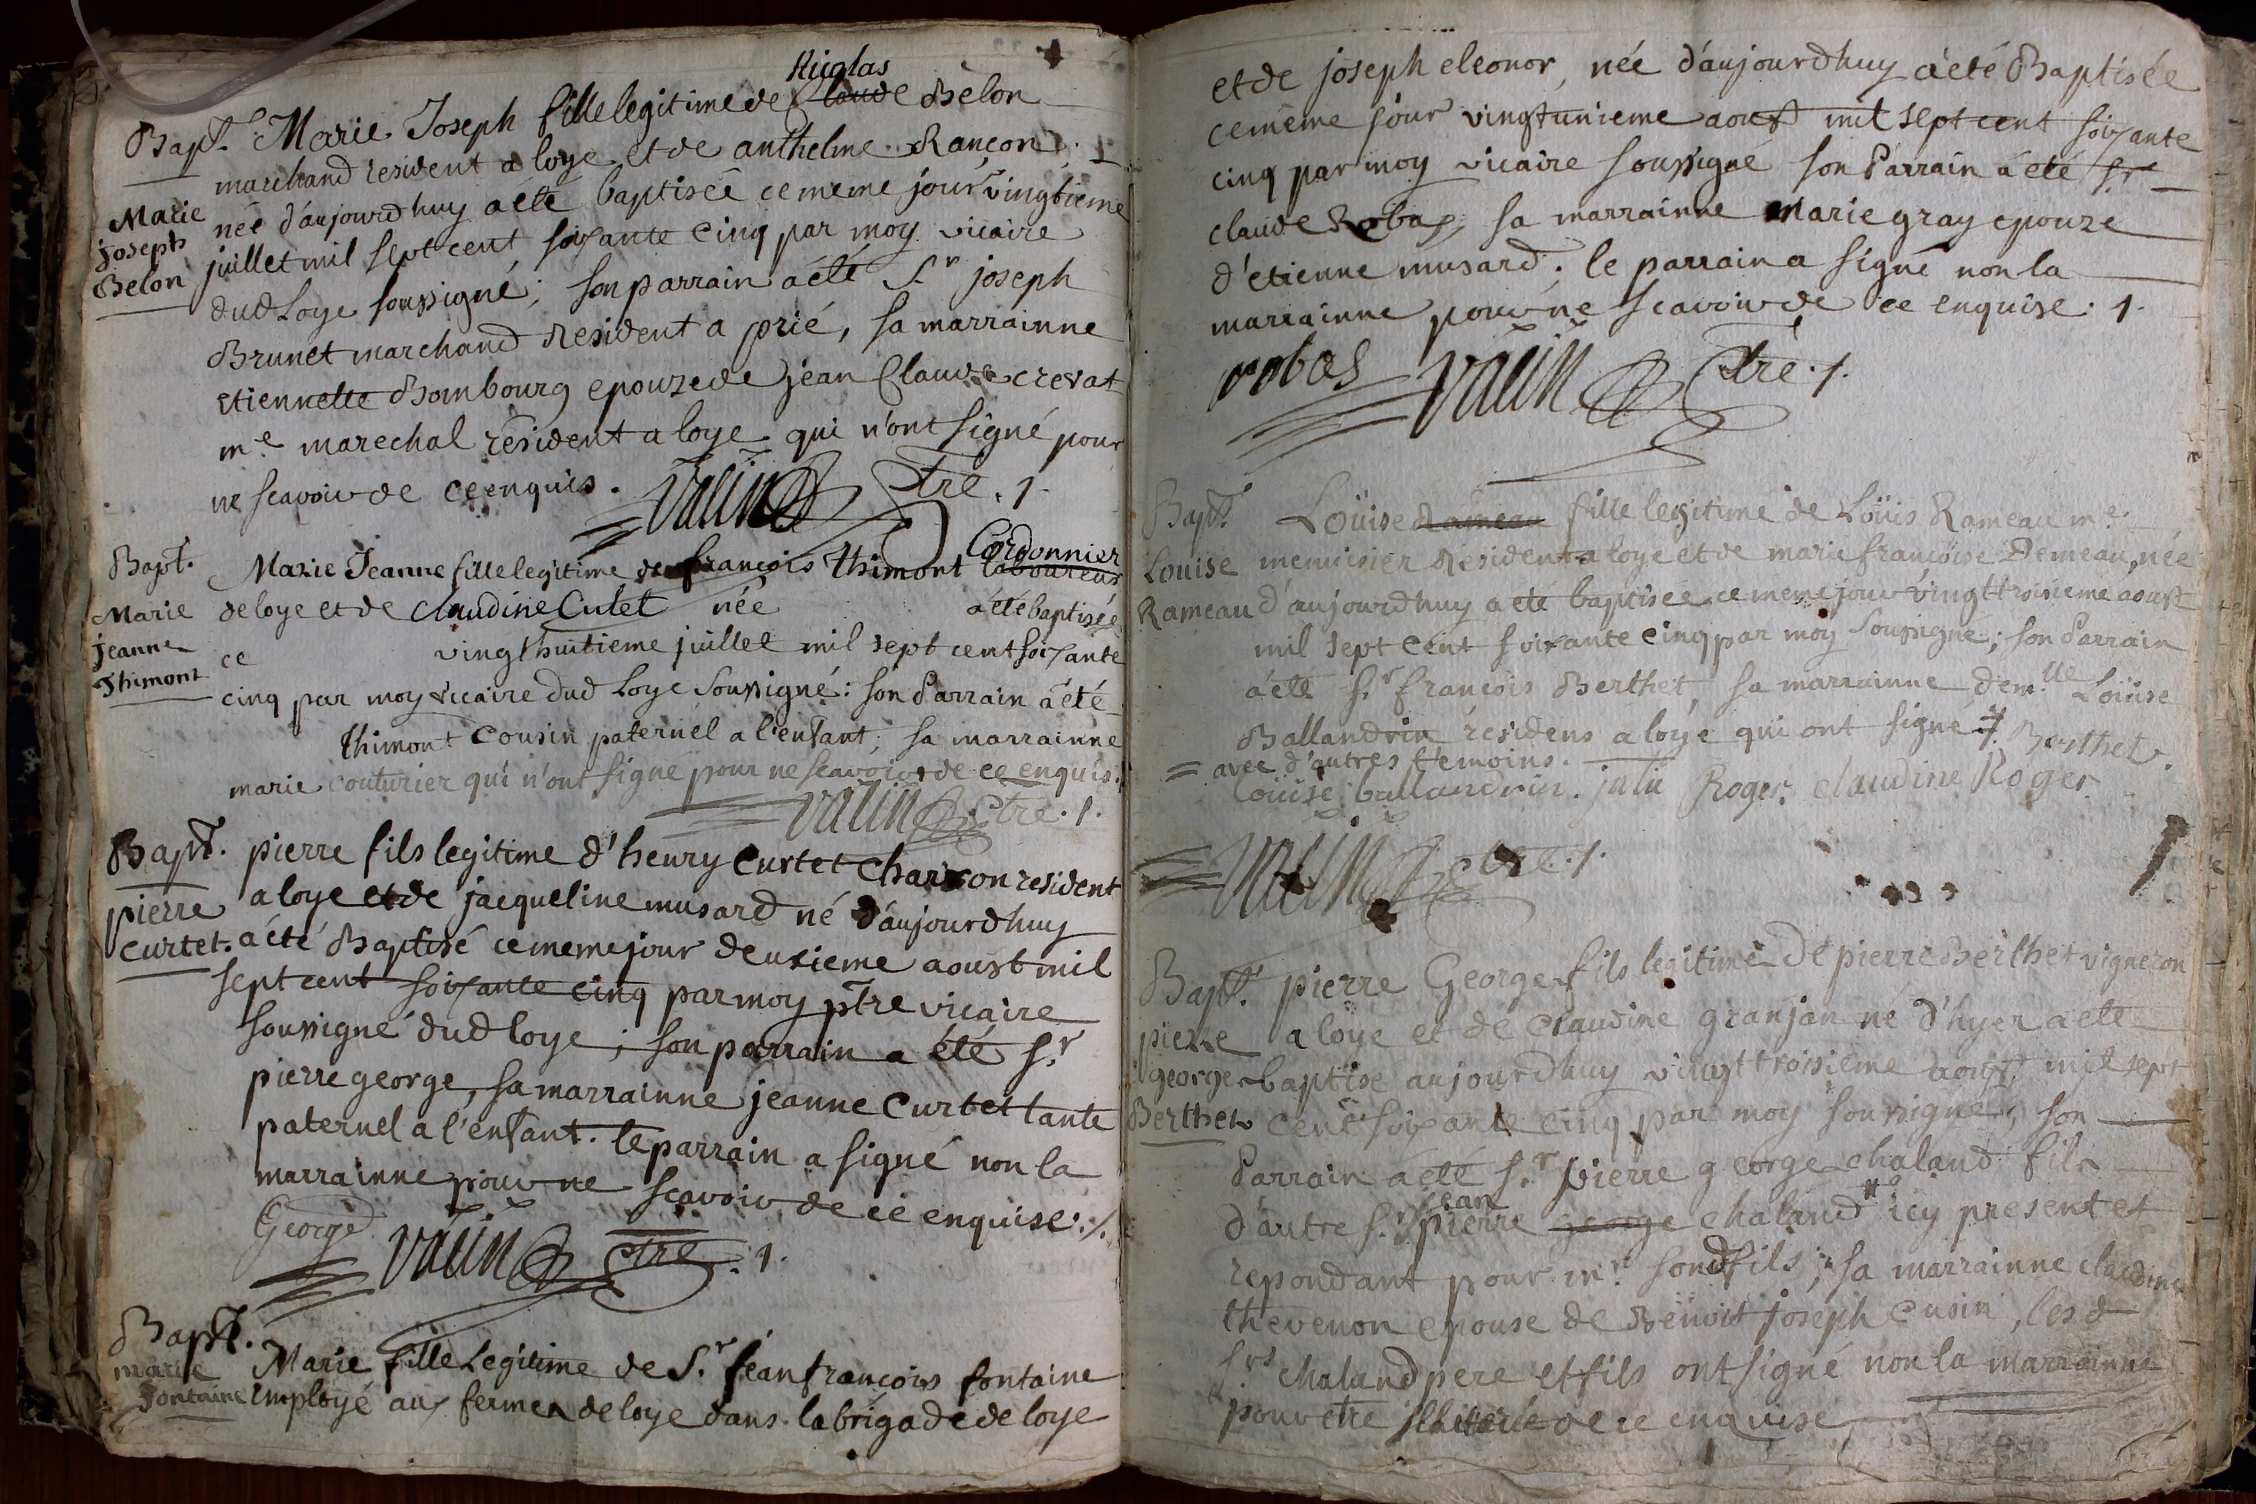 Nicolas
Bapt. Marie Joseph fille legitime de Claude Belon
marchand resident a loye et de anthelme Rançon
Marie née d'aujourdhuy a été baptisée ce meme jour vingtieme
joseph juillet mil sept cent soixante cinq par moy vicaire
Belon dud Loye soussigné; son parrain a été Sr joseph
Brunet marchand Resident a prié, sa marrainne
etiennette Bombourg epouze de jean Claude crevat
me marechal résident a loye qui n'ont signé pour
ne scavoir de ce enquis. ptre. 1.
Cordonnier
Bapt. Marie Jeanne fille legitime de françois Thimont laboureur
Marie de loye et de claudine Culet née a été baptisée
jeanne ce vingt huitieme juillet mil sept cent soixante
Thimont cinq par moy vicaire dud Loye soussigné: son Parrain a été
thimont Cousin paternel a l'enfant, sa marrainne
marie couturier qui n'ont signe pour ne scavoir de ce enquis.
ptre. 1.
Bapt. pierre fils legitime d'henry Curtet Charron resident
pierre a loye et de jacqueline musard né d'aujourdhuy
Curtet. a été Baptisé ce meme jour deuxieme aoust mil
sept cent soixante cinq par moy ptre vicaire
soussigné dud loye; son parrain a été Sr
pierre george, sa marrainne jeanne Curtet tante
paternel a l'enfant. le parrain a signé non la
marrainne pour ne scavoir de ce enquise. /.
George ptre. 1.
Bapt.
marie Marie fille Legitime de Sr jean françois fontaine
fontaine Employé aux fermes de loye dans la brigade de loye
et de joseph eleonor, née d'aujourdhuy a été Baptisée
ce même jour vingtunieme aoust mil sept cent soixante
cinq par moy vicaire soussigné son Parrain a été Sr
claude Robas, sa marrainne Marie gray epouze
d'etienne musard. le parrain a signé non la
marrainne pour ne scavoir de ce enquise. 1.
robas ptre. 1.
Bapt. Loüise Rameau fille legitime de Loüis Rameau me
Louise menuisier Resident a loye et de marie françoise Demeau, née
Rameau d'aujourdhuy a été baptisée ce meme jour vingt troisieme aoust
mil sept cent soixante cinq par moy soussigné; son Parrain
a été Sr françois Berthet, sa marrainne demlle Loüise
Ballandrin résidens a loye qui ont signé Berthet.
= avec d'autres temoins.
Loüise ballandrin. Roger. claudine Roger
ptre. 1.
Bapt. pierre George fils legitime de pierre Berthet vigneron
pierre a loye et de Claudine granjan né d'hyer a ete
george baptisé aujourdhuy vingt troisieme aoust mil sept
Berthet cent soixante cinq par moy soussigné, son
Parrain a été Sr pierre george chaland fils
jean
d'autre Sr pierre george chaland icy present et
repondant pour mr. sond fils; sa marrainne claudine
thevenon epouse de Benoit joseph Cusin, les d
Srs chaland pere et fils ont signé non la marrainne
pour etre illiterée de ce enquise